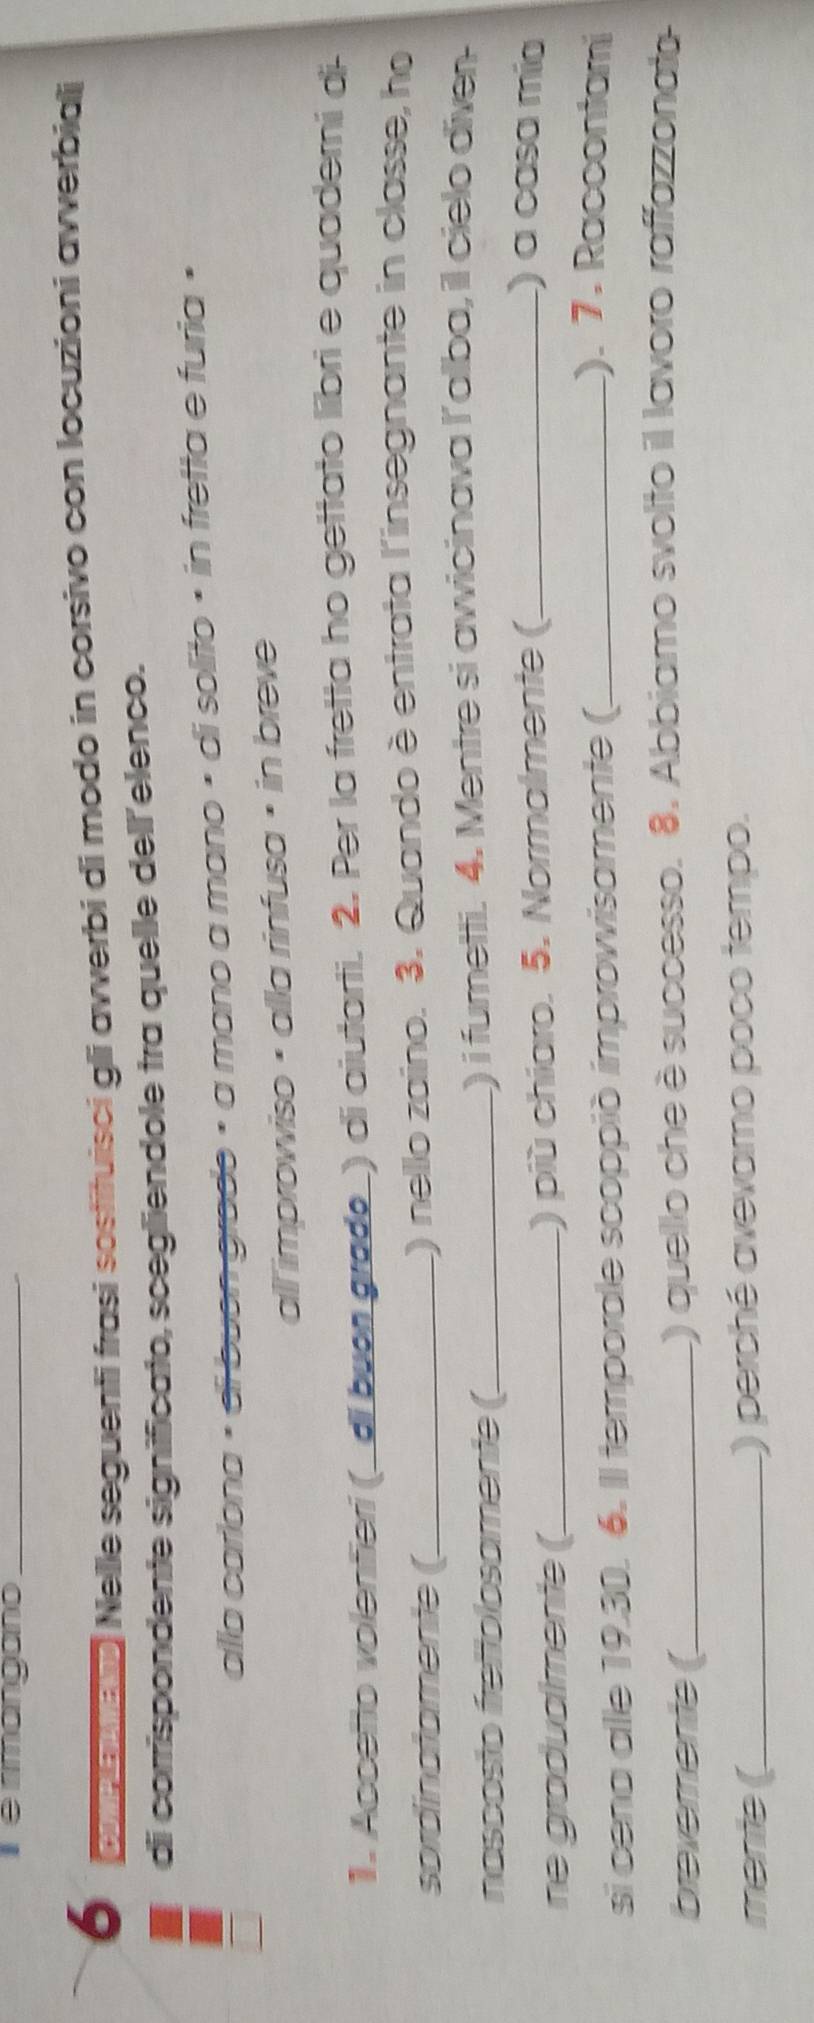 e rimangano
6 COMPLETAMENTO Nelle seguenti frasi sostituisci gli avverbi di modo in corsivo con locuzioni avverbiali
di corrispondente significato, scegliendole tra quelle dell'elenco.
alla carlona • di buon grado • a mano a mano • di solito • in fretta e furia •
all'improvviso • alla rinfusa • in breve
1. Accetto volentieri ( di buon grado ) di aiutarti. 2. Per la fretta ho gettato libri e quaderni di-
sordinatamente (____) nello zaino. 3. Quando è entrata l'insegnante in classe, ho
nascosto frettolosamente (____) i fumetti. 4. Mentre si avvicinava l'alba, il cielo diven-
ne gradualmente (____) più chiaro. 5. Normalmente (____) a casa mia
si cena alle 19.30. 6. Il temporale scoppiò improvvisamente (____). 7. Raccontami
brevemente (____) quello che è successo. 8. Abbiamo svolto il lavoro raffazzonata-
mente (____) perché avevamo poco tempo.